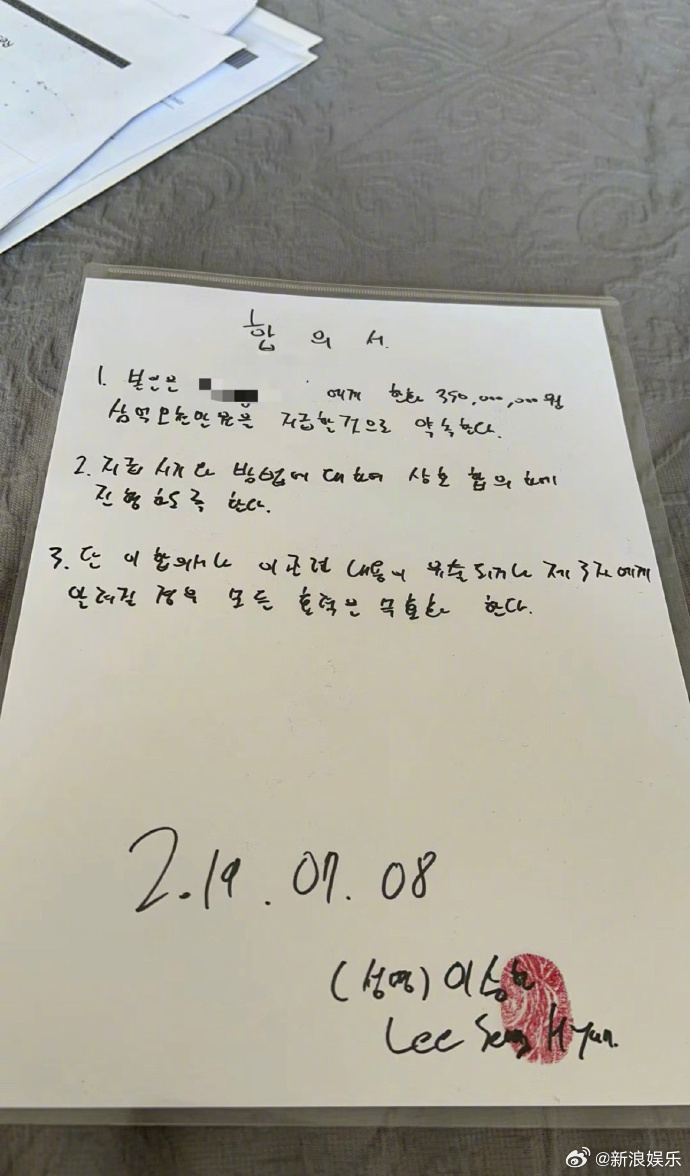 합 의 서
1. 본인은 에게 한화 350,000,000원
삼억오천만원을 지급할것으로 약속한다.
2. 지급 시기나 방법에 대하여 상호 합의하에
진행하도록 한다.
3. 단 이 합의서나 이 관련 내용이 유출되거나 제 3자에게
알려질 경우 모든 효력은 무효화 한다.
2.19.07.08
(성명) 이승현
Lee Seung Hyun.
@新浪娱乐